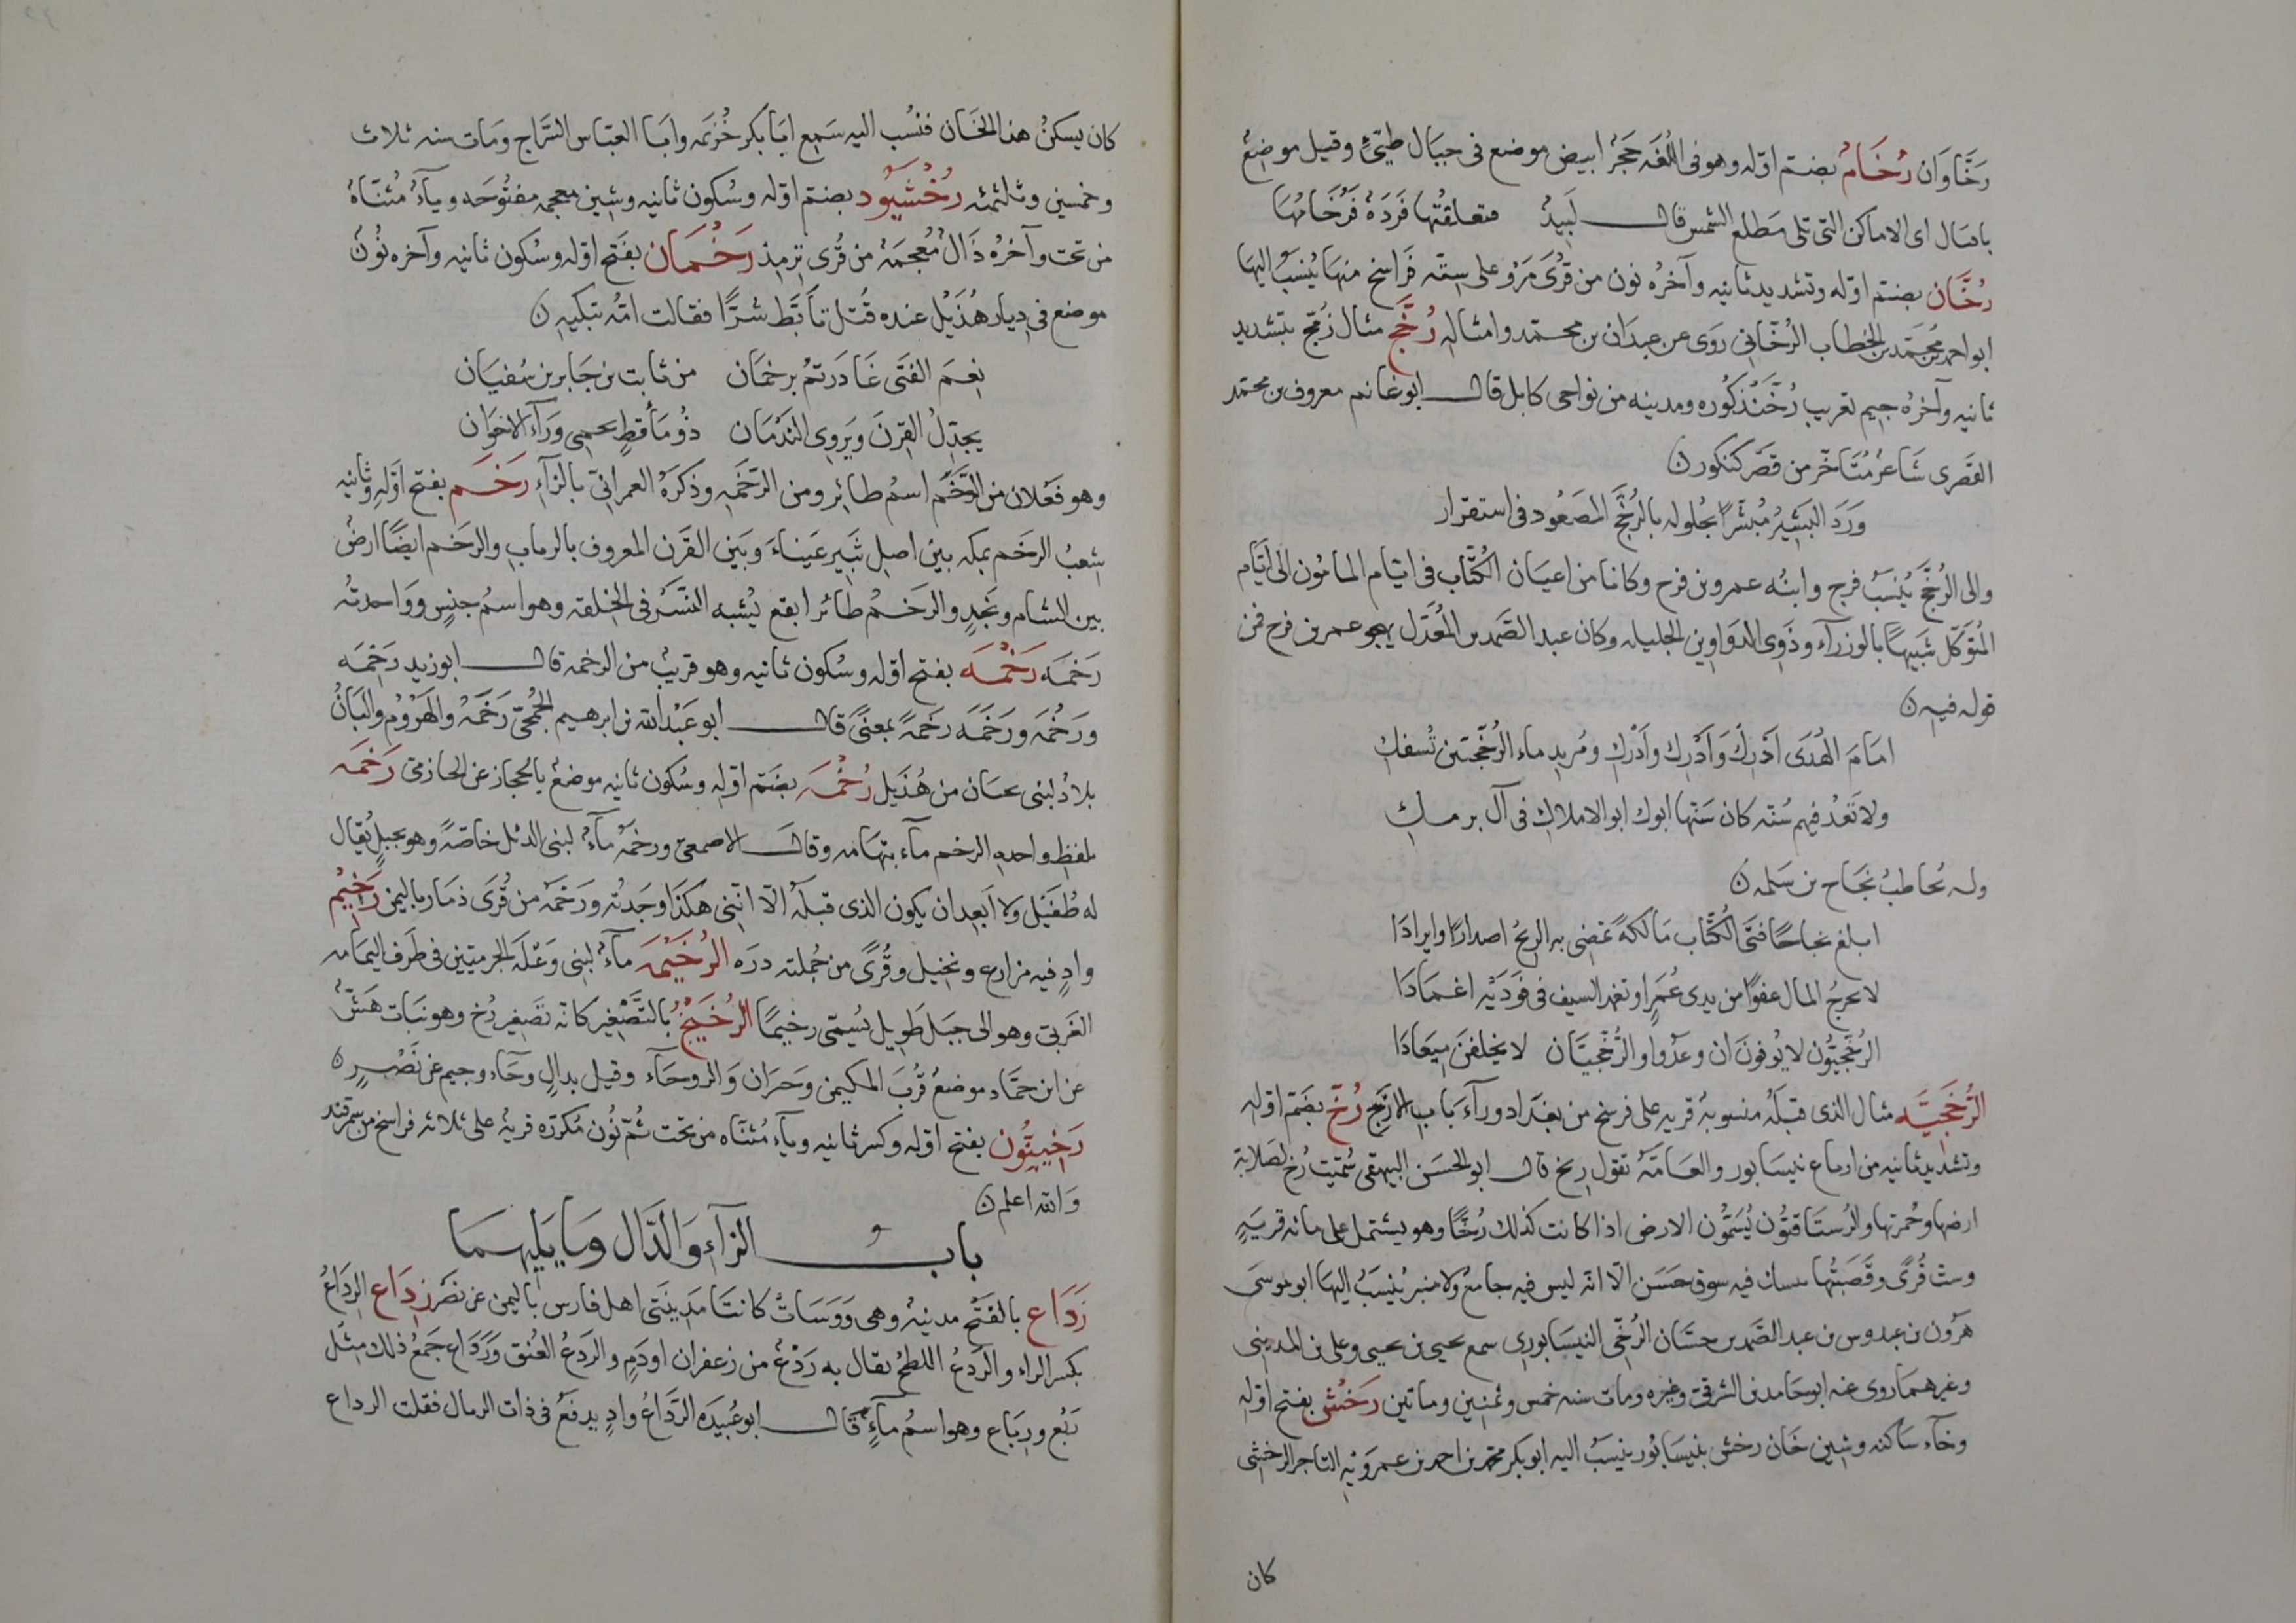 رَخَّاوَان رُخَامُ بضتم اوّله وهو فى اللغه حَجَرٌ ابيض موضع فى جبال طيّئٍ وقيل موضعٌ
باقبال اى الاماكن التى تلى مَطلع الشمس قال لَبِيدٌ فتعلقتُها فَردَةٌ فَرُخَامُهَا
رُخَّان بضتم اوّله وتشديد ثانيه وآخرُه نون من قُرَى مَرْو على سِتّه فَراسخ منهَا يُنسَبُ اليهَا
ابو احمد مُحمّد بن الخطاب الرُخّانى رَوى عن عبدَان بن محمتد وامثاله رُخَّج مثال زُمّج بتشديد
ثانيه وآخرُه جيم تعريب رُخَّنْد كُوره ومدينه من نواحى كابل قال ابو غانم معروف بن محمتد
القَصرى شَاعرٌ مُتَأخّر من قَصْر كنكور ن
وَرَدَ البَشيرُ مُبَشّرًا بحُلوله بالرُخَّج المَصعُود فى استقرار
والى الرُخَّج يُنسَبُ فرج وابنُه عمرو بن فرح وكانا من اعيان الكُتّاب فى ايّام المامُون الى ايّام
المُتوَكّل شَبيهًا بالوزرآء وذَوى الدَوَاوين الجليله وكان عبد الصَّمد بن المُعَذّل يهجو عمر بن فرح فمن
قوله فيهِ ن
امَامَ الهُدَى ادْرِكْ وَادْرِك وادْرِك ومُر بدماء الرُخّجيّين تُسفك
ولا تَعْدُ فيهم سُنّه كان سَنّها ابوك ابو الاملاك فى آل برمك
وله يُخاطبُ نجَاح بن سَلمه ن
ابلغ نجاحًا فتَى الكُتّاب مَالكهً تمضى بهِ الريحُ اصدارًا وايرادَا
لا يخرجُ المال عفوًا من يدى عُمَرٍ او تغمد السيف فى فَودَيْه اغمَادَا
الرُخّجيُّون لا يُوفون ان وعدُوا والرُّخَّجيّات لا يخلفنَ ميعَادَا
الرُّخَّجيَّه مثال الذى قبلَهُ منسوبهٌ قريه على فرسخ من بغدَاد ورآءَ بَاب الازج رُخّ بضَتم اوّله
وتشديد ثانيه من ارباع نيسَابور والعَامّه تقول رِيخ قال ابو الحسَن البيهقى سُميّت رُخ لصَلابة
ارضهَا وحُمرتها والرُستَاقيُّون يُسَمُّون الارض اذا كانت كذلك رُخًّا وهو يشتمل على مائه قريَةٍ
وست قُرًى وقَصَبَتُها فيه سوق حَسَن الّا انّه ليس فيه جامعٌ ولا منبر يُنسَبُ اليهَا ابو موسَى
هرُون بن عبدوس بن عبد الصَّمد بن حسّان الرُخّى النيسَابورى سمع يحيى بن يحيى وعلى بن المدينى
وغيرهمَا روى عنه ابو حَامد بن الشرقىّ وغيره ومات سنه خمس وثمنين وماتين رَخش بفتح اوّله
وخآء سَاكنه وشين خَان رخش بنيسَابُور ينسَبُ اليه ابو بكر محمّد بن احمد بن عمرَوَيْهِ التاجر الرخشى
كان
كان يسكنُ هذا الخَان فنسُب اليه سَمِع ابَا بكر خُزيمَه وابَا العبّاس السَّرّاج وَمات سنه ثلاث
وخمسين وثلثمئه رُخْشيُود بضتم اوّله وسُكون ثانيه وشين معجمه مفتُوحَه ويآءٌ مُثنّاهٌ
من تحت وآخرُه ذَالٌ مُعجمَهٌ من قُرى تِرمِذ رَخْمَان بفَتح اوّله وسُكون ثانيه وآخره نُونٌ
موضع فى ديار هُذَيْل عنده قُتل تأَبَّط شرًّا فقالت امّهُ تبكيهِ ن
نِعمَ الفتَى غَادَرتمُ برخمَان من ثابت بن جَابر بن سُفيَان
يجدّلُ القِرنَ ويَروى النَدْمَان ذُو مَأقطٍ يحمى وَرآءَ الاخوَان
وهو فَعْلان من الرَّخَم اسمُ طائِر ومن الرَّخمَهِ وذكَرَهُ العمرانىّ بالزآءِ رَخَم بفتح اوّلهِ وثانيه
شِعبُ الرخَم بمكه بين اصل ثَبير عَينَاءَ وبَين القَرن المعروف بالرباب والرخَم ايضًا ارضٌ
بين الشام ونَجدٍ والرخَم طَائر ابقع يُشبه النسْر فى الخِلقه وهو اسمُ جنسٍ ووَاحدتُه
رَخمَه رَخْمَه بفتح اوّله وسُكون ثانيه وهو قريبٌ من الرخمه قال ابو زيد رَخِمَه
وَرَخُمَه ورَخَمَه رخمَةً بمعنًى قال ابو عَبْد الله بن ابرهيم الجُمحىّ رَخَمَهُ والهَزُومُ والبَانُ
بلادٌ لبنى لحيَان من هُذَيل رُخْمَه بضَتم اوّلهِ وسُكون ثانيه موضعٌ بالحجَاز عن الحازمىّ رَخَمَه
بلفظِ واحده الرخم مآء بتهَامه وقال الاصمعىّ ورخمَهُ مآءٌ لبنى الدئل خاصّهً وهو بجبلٍ يُقال
له طُفَيْل ولا اَبعِد ان يكون الذى قبلَه الّا انّنى هكذَا وجَدتُه ورَخمَه من قُرَى ذمَار باليمن رَخِيْم
وادٍ فيه مزارع ونخيل وقُرًى من جُملته درَه الرُخَيْمَه مآءٌ لبنى وَعْلَه الجرميّين فى طَرف اليمَامه
الغَربىّ وهو الى جبَل طَويل يُسمّى رخيمًا الرُخَيْخُ بالتَّصْغِير كانّه تصَغِير رُخ وهو نبَات هَشٌّ
عن ابن حمّاد موضعٌ قُربَ المكيمن وَحرَان وَالروحَآء وقيل بدالٍ وحَاء وجيم عن نَصْرٍ ن
رَخِينُون بفتح اوّله وكسر ثانيه ويآءٍ مُثنّاه من تحت ثُمّ نُون مكرّره قريهٌ على ثلاثه فراسخ من سمرقند
وَالله اعلم ن
بابُ الرآءِ وَالدّال وَمَا يَليهمَا
رَدَاع بالفَتْح مدينهٌ وهى وَوَسَاتٌ كانتَا مَدِينَتى اهل فارس باليمن عن نصْر رِدَاع الرِدَاعُ
بكسر الراء والرَّدعُ اللطخُ يقال به رَدْعٌ من زعفران او دَمٍ والردعُ العُنق ورِدَاع جَمعُ ذلك مثل
رَبْع ورِبَاع وهو اسمُ مآءٍ قال ابو عُبَيدَه الرَّدَاعُ وادٍ يدفَعُ فى ذات الرمال فقلت الرداع